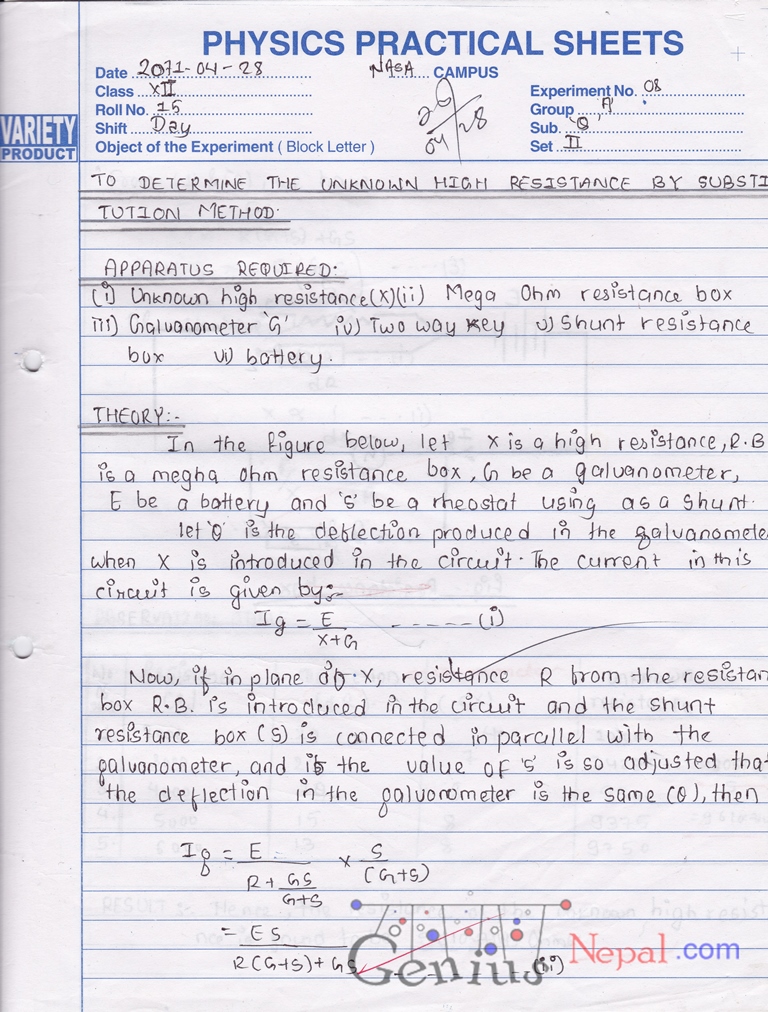 PHYSICS PRACTICAL SHEETS
Date 2071-04-28 NASA CAMPUS
Class XII Experiment No. 08
Roll No. 15 Group A
Shift Day Sub. Q
Object of the Experiment ( Block Letter ) Set II
04/28
VARIETY
PRODUCT
TO DETERMINE THE UNKNOWN HIGH RESISTANCE BY SUBSTI
TUTION METHOD.
APPARATUS REQUIRED:
(i) Unknown high resistance(X)(ii) Mega Ohm resistance box
iii) Galvanometer 'G' iv) Two way key v) Shunt resistance
box vi) battery.
THEORY:-
In the figure below, let X is a high resistance, R.B
is a megha ohm resistance box, G be a galvanometer,
E be a battery and 'S' be a rheostat using as a shunt.
let 'θ' is the deflection produced in the galvanomete
when X is introduced in the circuit. The current in this
circuit is given by:-
Ig = E / X+G ------(i)
Now, if in plane of X, resistance R from the resistan
box R.B. is introduced in the circuit and the shunt
resistance box (S) is connected in parallel with the
galvanometer, and if the value of 'S' is so adjusted that
the deflection in the galvonometer is the same (θ), then
Ig = E / R + GS/G+S × S / (G+S)
= ES / R(G+S)+GS (ii)
Genius Nepal.com